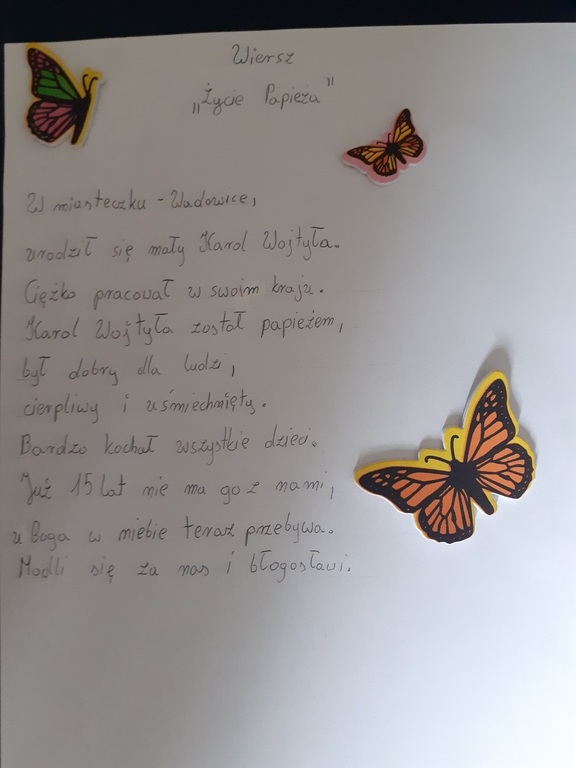 Wiersz
„Życie Papieża"
W miasteczku - Wadowice,
urodził się mały Karol Wojtyła.
Ciężko pracował w swoim kraju.
Karol Wojtyła został papieżem,
był dobry dla ludzi,
cierpliwy i uśmiechnięty.
Bardzo kochał wszystkie dzieci.
Już 15 lat nie ma go z nami,
u Boga w niebie teraz przebywa.
Modli się za nas i błogosławi.